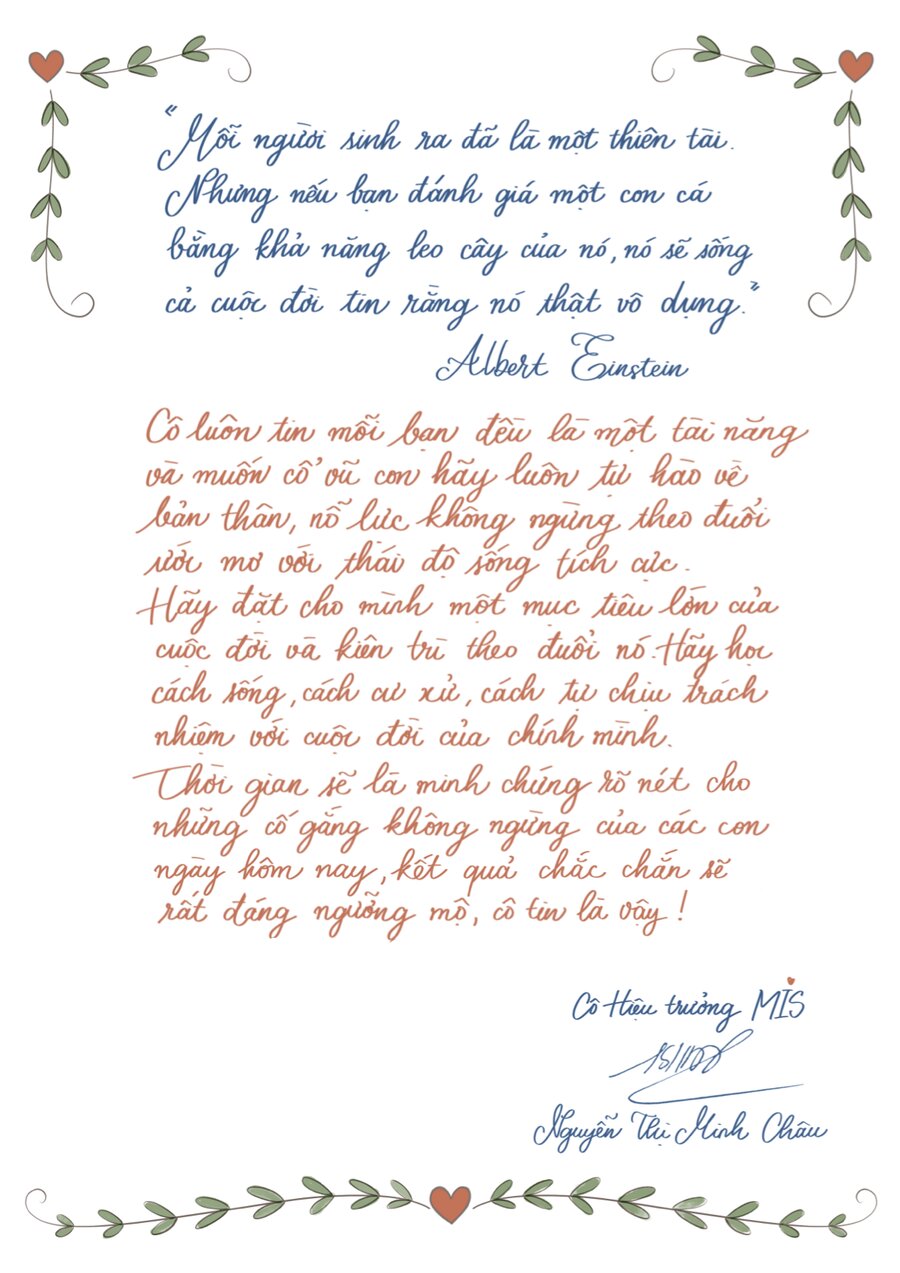 "Mỗi người sinh ra đã là một thiên tài.
Nhưng nếu bạn đánh giá một con cá
bằng khả năng leo cây của nó, nó sẽ sống
cả cuộc đời tin rằng nó thật vô dụng."
Albert Einstein
Cô luôn tin mỗi bạn đều là một tài năng
và muốn cổ vũ con hãy luôn tự hào về
bản thân, nỗ lực không ngừng theo đuổi
ước mơ với thái độ sống tích cực.
Hãy đặt cho mình một mục tiêu lớn của
cuộc đời và kiên trì theo đuổi nó. Hãy học
cách sống, cách cư xử, cách tự chịu trách
nhiệm với cuộc đời của chính mình.
Thời gian sẽ là minh chứng rõ nét cho
những cố gắng không ngừng của các con
ngày hôm nay, kết quả chắc chắn sẽ
rất đáng ngưỡng mộ, cô tin là vậy!
Cô Hiệu trưởng MIS
Nguyễn Thị Minh Châu